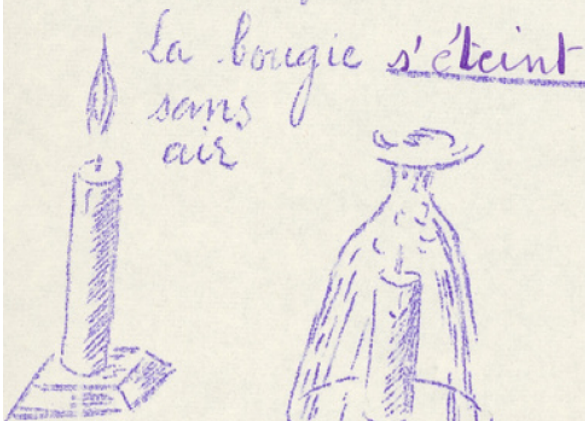 La bougie s'éteint
sans
air